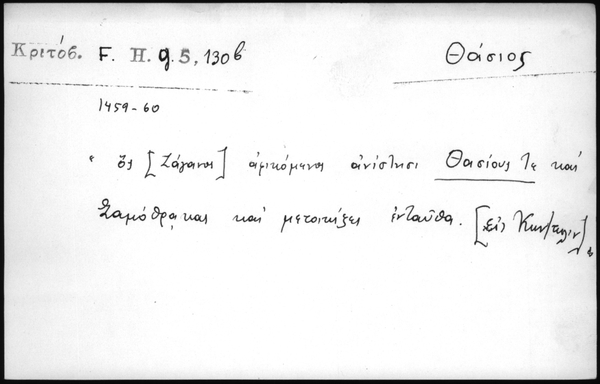 Κριτόβ. F. H. g. 5, 130b
Θάσιος
1459-60
" ὃς [Ζάγανος] ἀφικόμενος ἀνίστησι Θασίους τε καὶ
Σαμόθρᾳκας καὶ μετοικίζει ἐνταῦθα. [εἰς Κων/πολιν]"